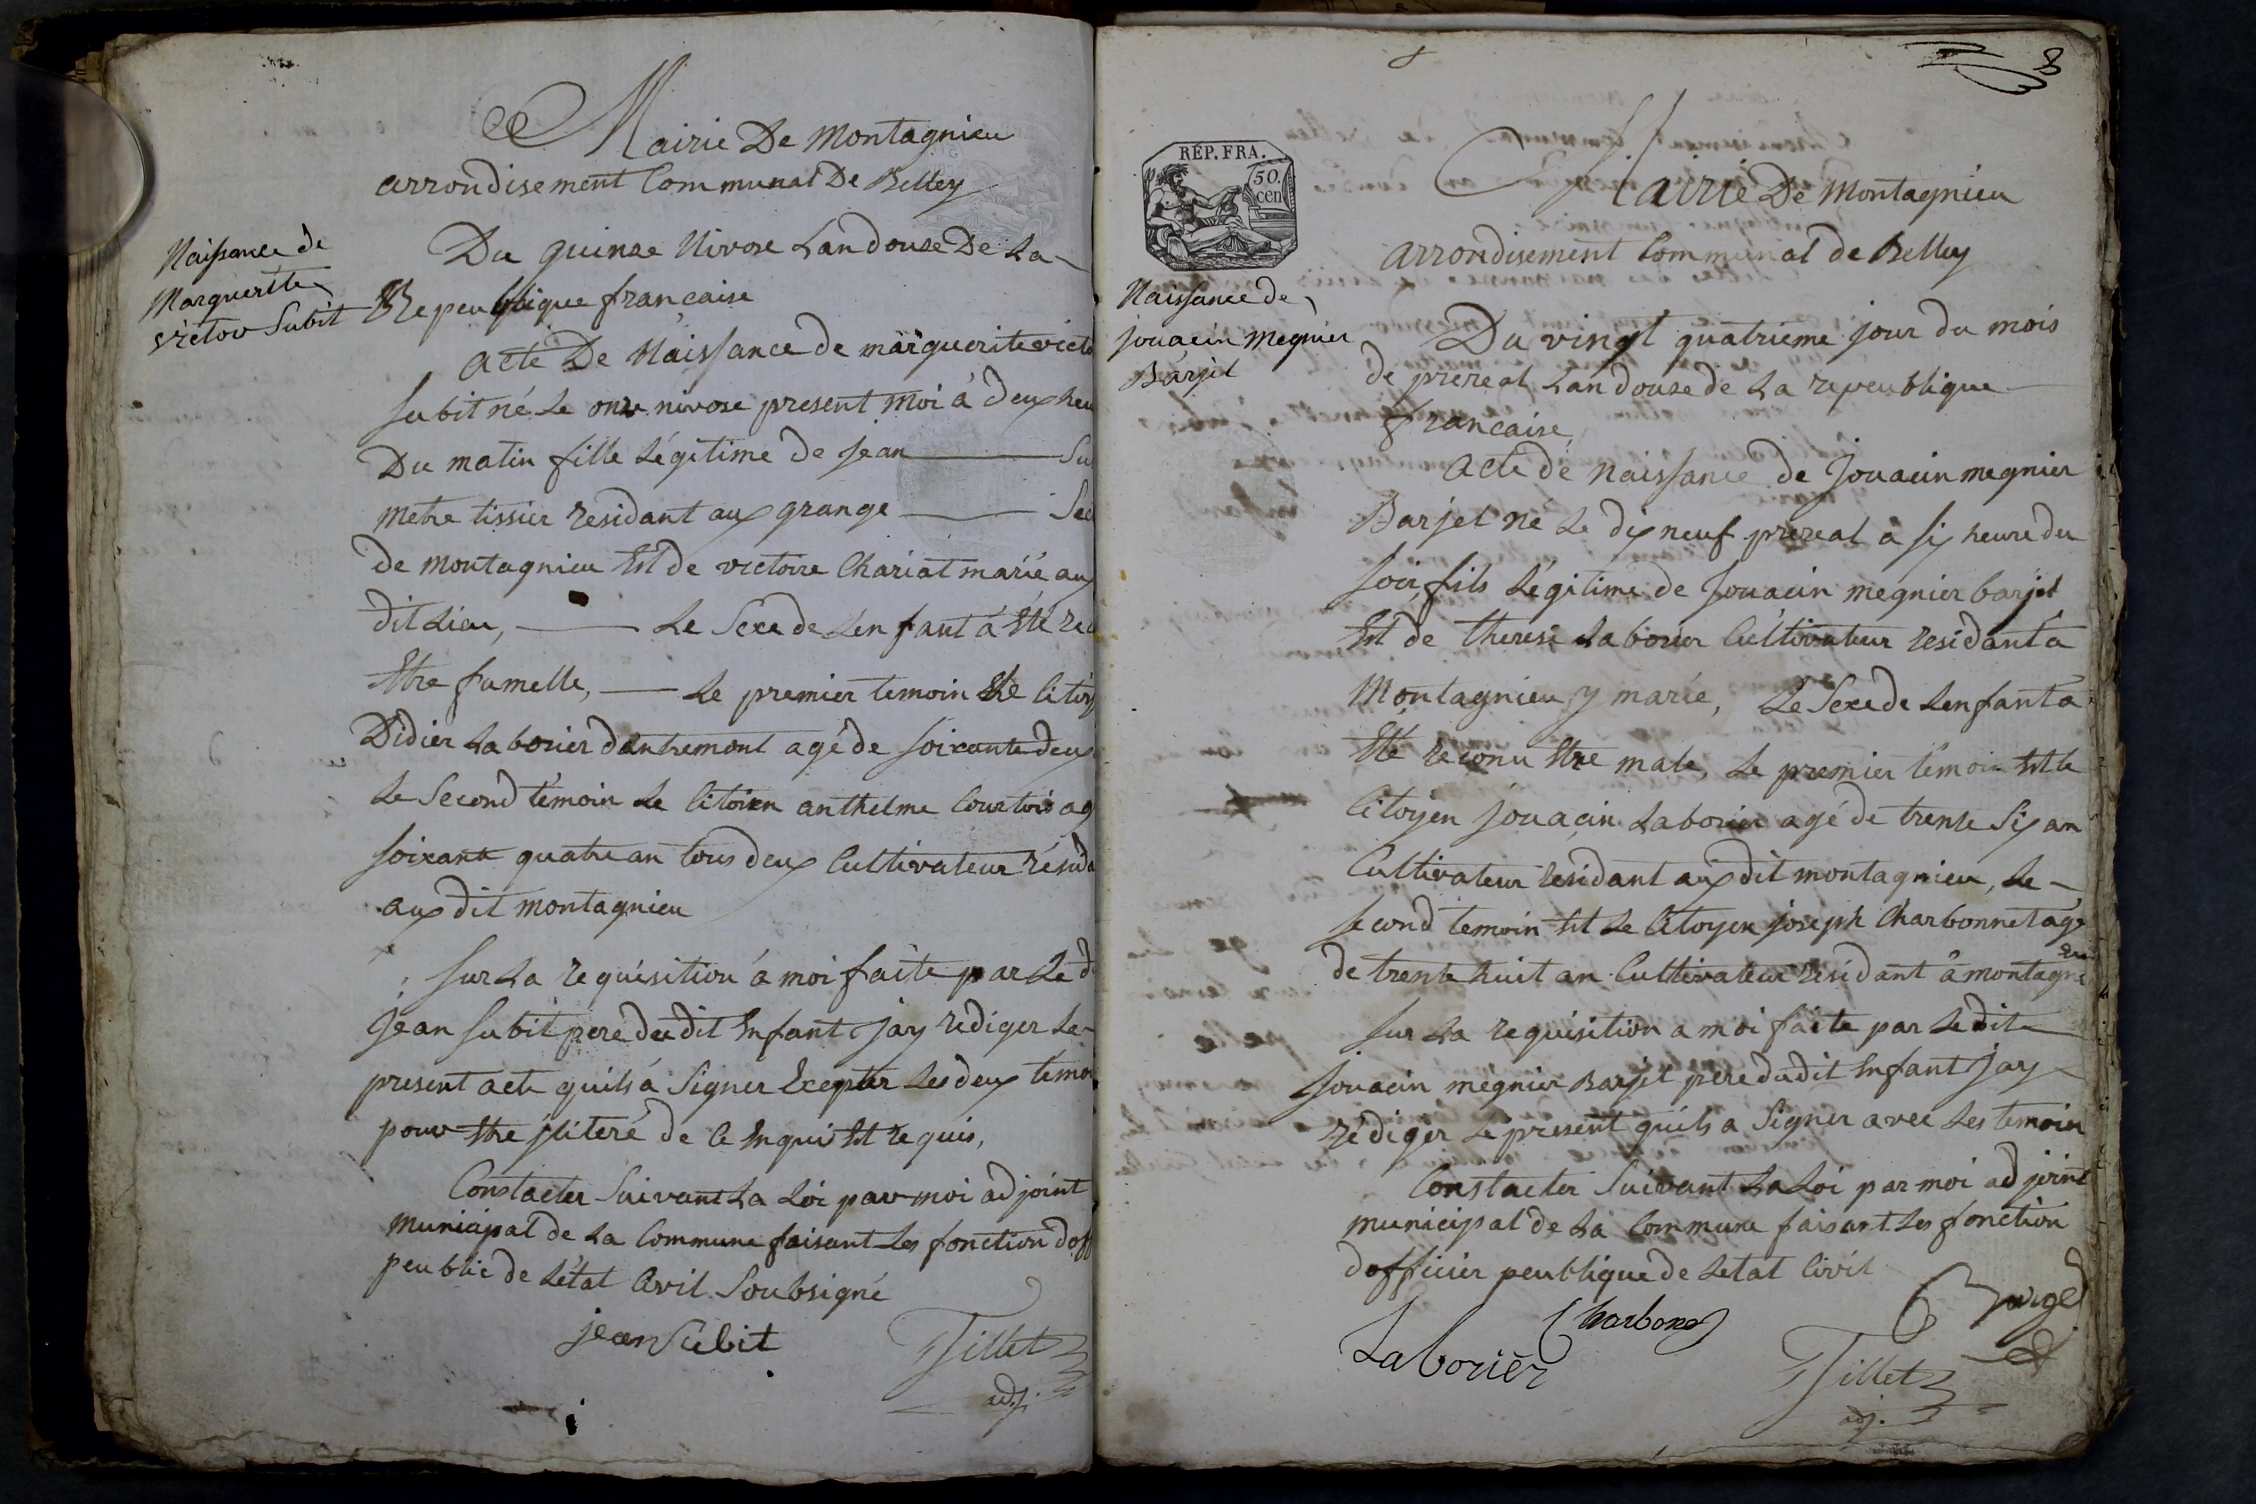 Mairie De Montagnieu
arrondisement Communal De Belley
Naissance de
Margueritte
victor Subit
Du quinze Nivose Lan douze De La
Repeublique francaise
acte De Naissance de marguerite victo
Subit né Le onze nivose present moi à deux heu
Du matin fille Légitime de jean Su
metre tissier residant aux grange Sec
de montagnieu Est de victoire Chariat marié au
dit Lieu, Le Sexe de Lenfant á Eté rec
Etre famelle, Le premier temoin Est le Citoy
Didier Laborier dantremont agé de Soixante deux
Le Second témoin Le Citoien anthelme Courtois ag
Soixante quatre an tous deux Cultivateur résida
aux dit montagnieu
Sur La requisition á moi faite par Le d
jean Subit pere dudit Enfant jay rediger Le
present acte quils á Signer Excepter Les deux temoi
pour Etre jliteré de Ce Enqui Est requis,
Constacter Suivant La Loi par moi adjoint
municipal de La Commune faisant Les fonction doff
peublic de Létat Civil Soubsigné
jean Subit
Tillet
adj.
8
REP. FRA.
50.
cen
Mairie De Montagnieu
arrondisement Communal de Belley
Naissance de
jouacin Megnier
Barjet
Du vingt quatrieme jour du mois
de prereal Lan douze de La repeublique
francaise,
acte de naissance de Jouacin megnier
Barjet né Le dix neuf prereal á six heure du
Soir, fils Légitime de Jouacin megnier barjet
Est de therese Laborier Cultivateur residant á
Montagnieu y marié, Le Sexe de Lenfant á
Eté reconu Etre male, Le premier témoin Est le
Citoyen jouacin Laborier agé de trente Six an
Cultivateur residant aux dit montagnieu, Le
Second temoin Est Le Citoyen joseph Charbonnet agé
de trente huit an Cultivateur residant á montagni
Sur La requisition a moi faite par Ledit
jouacin mégnier Barjet pere dudit Enfant jay
rédiger Le present quils a Signer avec Les temoin
Constacter Suivant La Loi par moi adjoint
municipal de La Commune faisant Les fonction
dofficier peublique de Letat Civil
Charbone
Laborier
Tillet
adj.